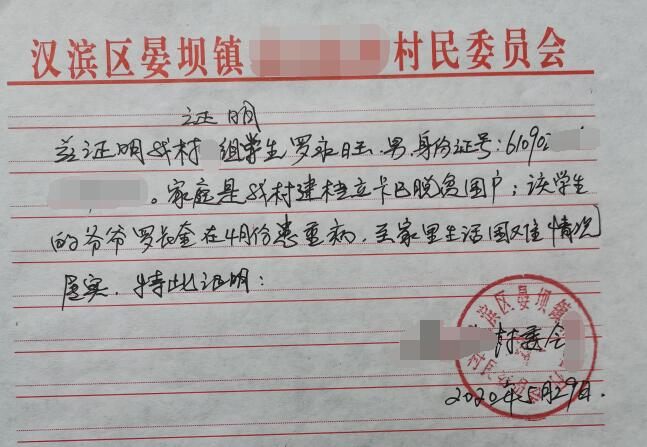 汉滨区晏坝镇 村民委员会
证明
兹证明我村 组学生罗 旺,男,身份证号:61090
。家庭是我村建档立卡已脱贫困户;该学生
的爷爷罗长奎在4月份患重病,至家里生活困难情况
属实,特此证明:
村委会
2020年5月29日.
滨区晏坝镇
村民委员会